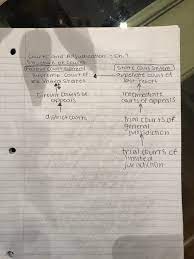 Courts and Adjudication - Ch. 9
Structure of Courts
Federal Court General
State Court General
Supreme Court of
the United States
Supreme Court of
last resort
Circuit Courts of
appeals
Intermediate
courts of appeals
district courts
trial courts of
general
jurisdiction
trial courts of
limited
jurisdiction